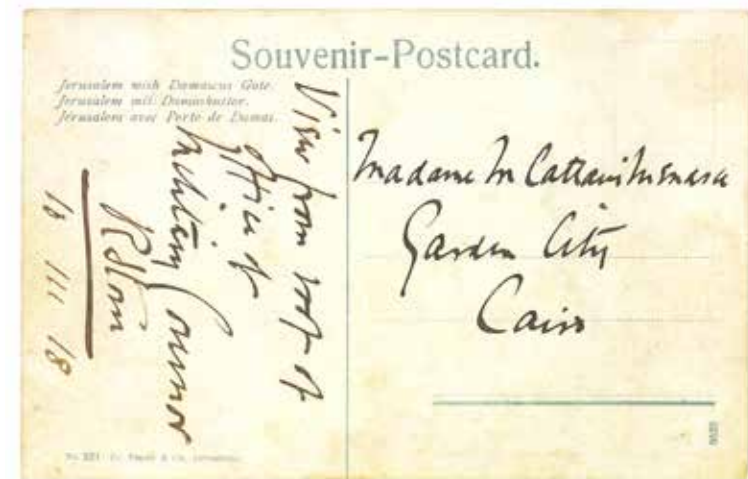 Souvenir-Postcard.
Jerusalem with Damascus Gate.
Jerusalem mit Damaskustor.
Jérusalem avec Porte de Damas.
View from roof of
Office of
Military Governor
RStorrs
18 III 18
Madame M Cattaui
Garden City
Cairo
No. 221